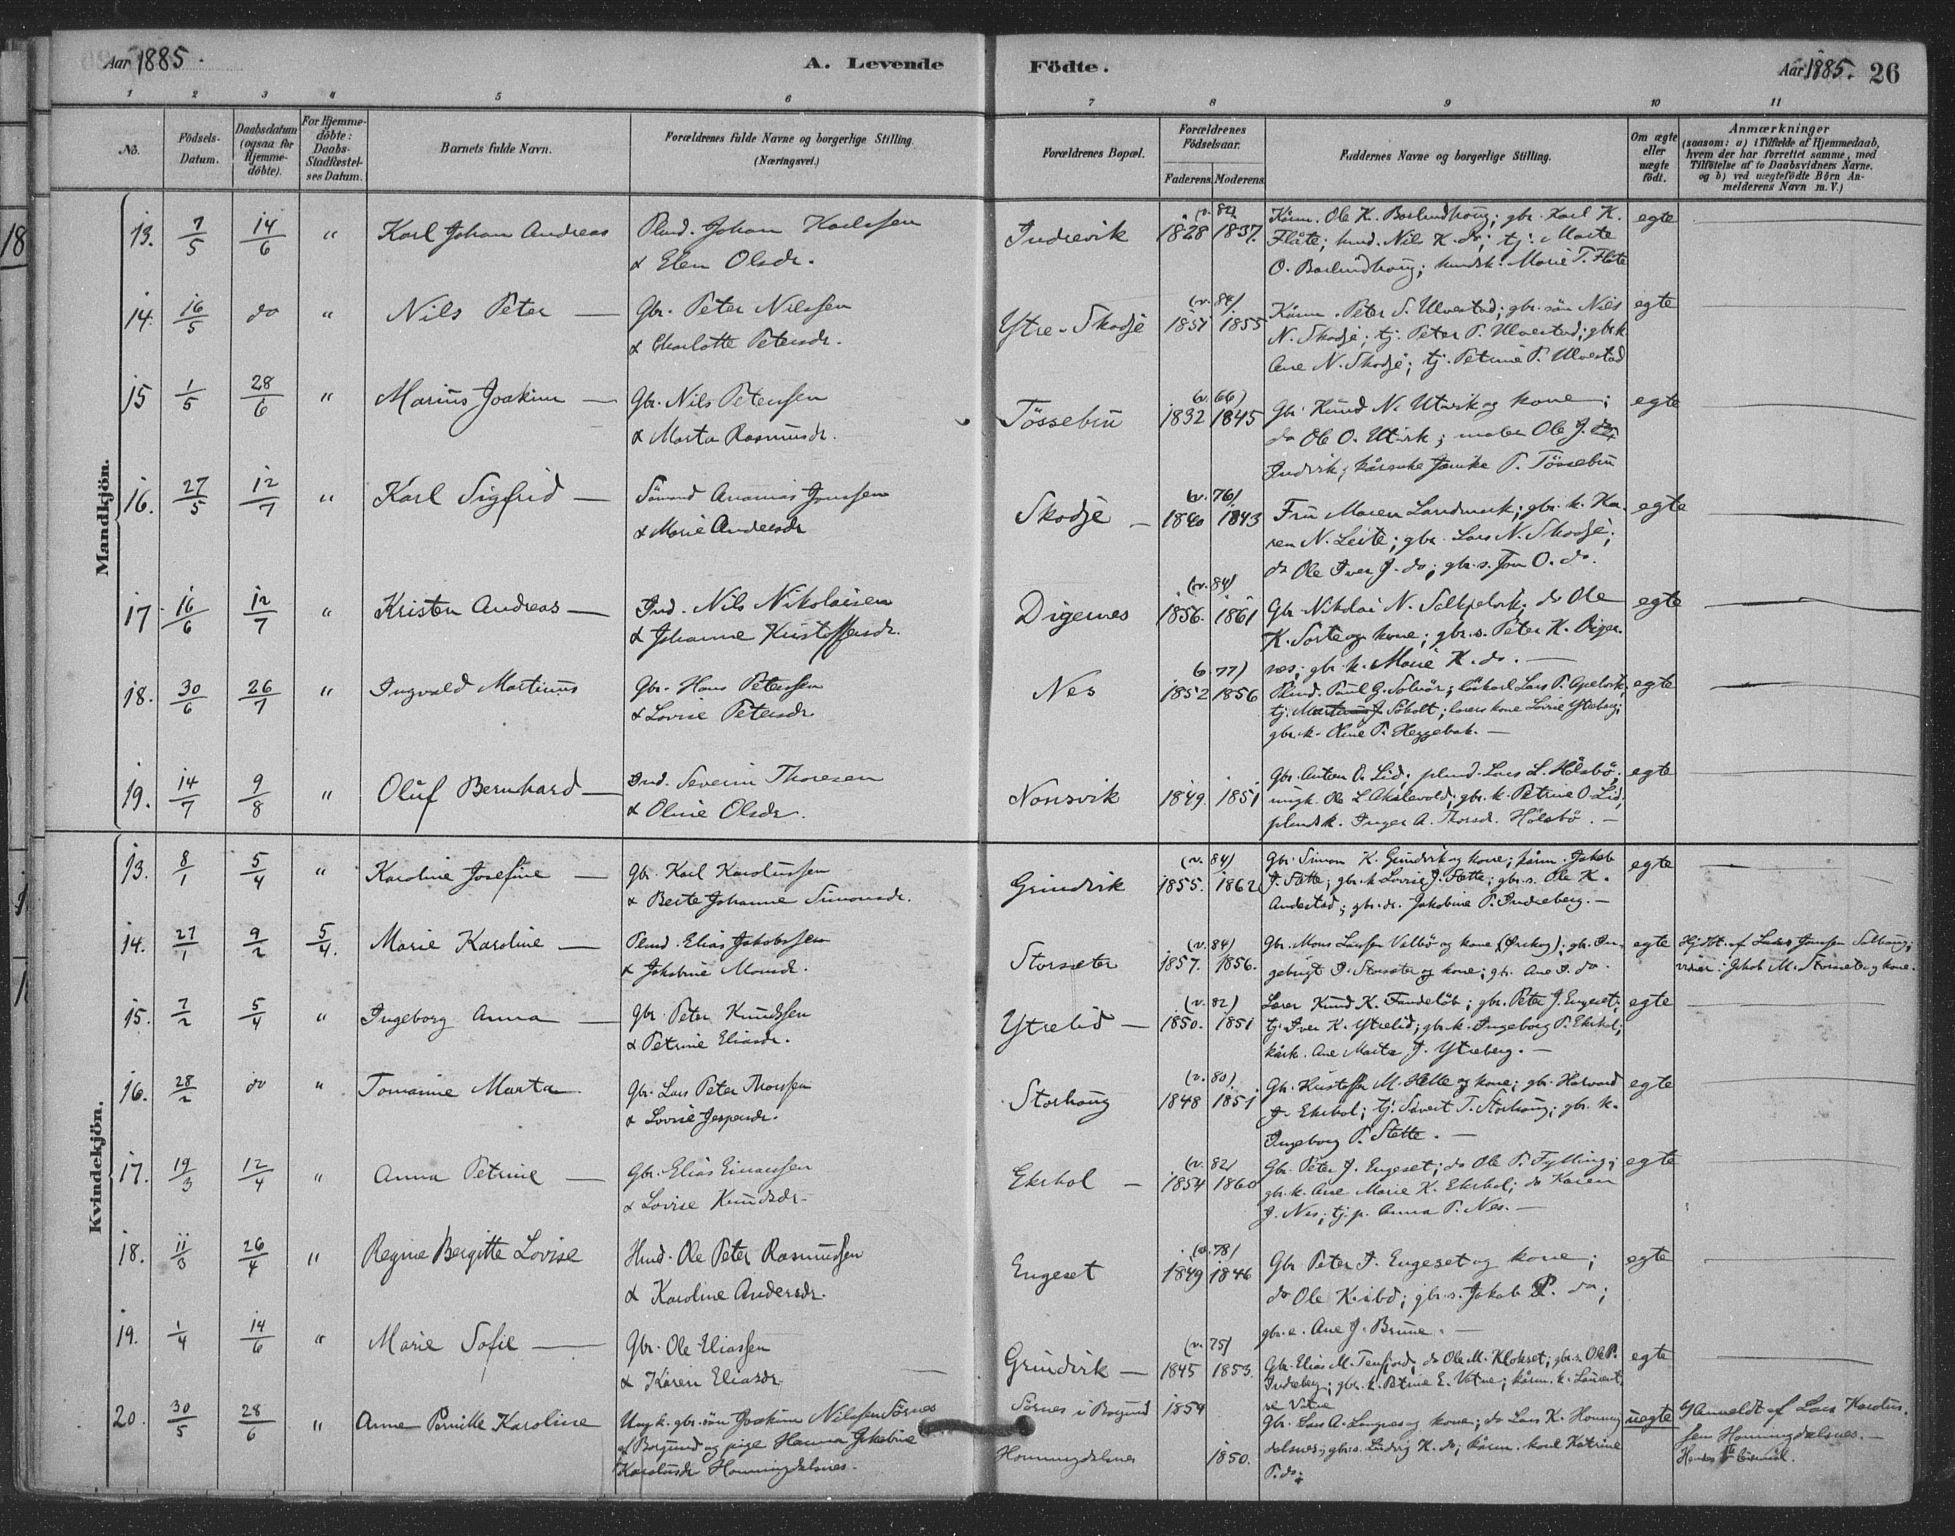 Aar 1885.
A. Levende
Födte.
Aar 1885. 26
1 2 3 4 5 6 7 8 9 10 11
No.
Födsels-Datum.
Daabsdatum (ogsaa for Hjemme-döbte).
For Hjemme-döbte: Daabs-Stadfæstel-ses Datum.
Barnets fulde Navn.
Forældrenes fulde Navne og borgerlige Stilling. (Næringsvei.)
Forældrenes Bopæl.
Forældrenes Födselsaar.
Faderens. Moderens.
Faddernes Navne og borgerlige Stilling.
Om ægte eller uægte födt.
Anmærkninger
(saasom: a) i Tilfælde af Hjemmedaab, hvem der har forrettet samme, med Tilföielse af to Daabsvidners Navne. og b) ved uægtefödte Börn Anmelderens Navn m. V.)
Mandkjön.
13. 7/5 14/6 " Karl Johan Andreas
Plmd. Johan Karlssen
& Elen Olsdr.
Indrevik (v. 82) 1828 1837.
Kårm. Ole K. Barlindhoug; gbr. Karl K.
Flåte; hmd. Nils K. do; tj. Marte
O. Barlindhoug; hmdsk. Marie T. Flåte
egte
14. 16/5 do " Nils Peter
Gbr. Peter Nilssen
& Charlotte Petersdr.
Ytre-Skodje (v. 84) 1851 1855
Kårm. Peter S. Ulvestad; gbr. sön Nils
N. Skodje; tj. Peter P. Ulvestad; gbr. k.
Ane N. Skodje; tj. Petrine P. Ulvestad
egte
15 1/5 28/6 " Marius Joakim
Gbr. Nils Petersen
& Marta Rasmusdr.
Tössebru (v. 66) 1832 1845
Gbr. Knud N. Utvik og kone;
do Ole O. Utvik; maler Ole J.
Indvik; kårenke Janike P. Tössebru
egte
16. 27/5 12/7 " Karl Sigfrid
Sömand Ananias Jonssen
& Marie Andersdr
Skodje (v. 76) 1840 1843
Fru Maren Landmark; gbr. k. Ka-
ren N. Leite; gbr. Lars N. Skodje;
do Ole Iver J. do; gbr. s. Jon O. do.
egte
17 16/6 12/7 " Kristen Andreas
Ind. Nils Nikolaisen
& Johanne Kristoffersdr.
Digernes (v. 84) 1856. 1861
Gbr. Nikolai N. Solkjelvik; do Ole
K. Sorte og kone; gbr. s. Peter K. Diger-
nes; gbr. k. Marie K. do.
egte
18. 30/6 26/7 " Ingvald Martinus
Gbr. Hans Peterssen
& Lovise Petersdr
Nes (v. 77) 1852 1856
Plmd. Paul G. Solnör; löskarl Lars P. Apelvik;
tj. Martinus J. Söholt; lærers kone Lovise Ytreberg;
gbr. k. Oline P. Heggebak.
egte
19. 14/7 9/8 " Oluf Bernhard
Ind. Severin Thoresen
& Oline Olsdr.
Nonsvik 1849. 1851
Gbr. Anton O. Lid. plmd. Lars L. Håsbö;
ungk. Ole L. Akslevold; gbr. k. Petrine O. Lid;
plmdsk. Inger A. Thorsdr. Håsbö.
egte
Kvindekjön.
13. 8/1 5/4 " Karoline Josefine
Gbr. Karl Karolussen
& Berte Johanne Simonsdr.
Grindvik (v. 84) 1855. 1862
Gbr. Simon K. Grindvik og kone; kårm. Jakob
J. Fætte; gbr. k. Lovise J. Fætte; gbr. s. Ole K.
Andestad; gbr. dr. Jakobine P. Indreberg.
egte
14. 27/1 9/2 5/4. Marie Karoline
Plmd. Elias Jakobssen
& Jakobine Monsdr.
Storsæter (v. 84) 1857. 1856.
Gbr. Mons Larssen Valbö og kone (Örskog); gbr. In-
gebrigt I. Storsæter og kone; gbr. Ane I. do.
egte
Hjdbt. af Lars Jonssen Solhoug;
vidner: Jakob M. Storsæter og kone.
15. 7/2 5/4 " Ingeborg Anna
Gbr. Peter Knudssen
& Petrine Eliasdr.
Ytrelid (v. 82) 1850. 1851
Lærer Knud K. Fandelöb; gbr. Peter J. Engeset;
tj. Iver K. Ytrelid; gbr. k. Ingeborg P. Ekrhol;
kårk. Ane Marta J. Ytreberg.
egte
16. 28/2 do " Tomanne Marta
Gbr. Lars Peter Thorssen
& Lovise Jespersdr.
Storhoug (v. 80) 1848 1851
Gbr. Kristoffer M. Helle og kone; gbr. Halvard
J. Ekrhol; tj. Sivert T. Storhoug; gbr. k.
Ingeborg P. Stette.
egte
17. 19/3 12/4 " Anna Petrine
Gbr. Elias Einarssen
& Lovise Knudsdr.
Ekrhol (v. 82) 1854 1860
Gbr. Peter J. Engeset; do Ole P. Fylling;
gbr. k. Ane Marie K. Ekrhol; do Karen
J. Nes; tj. p. Anna P. Nes.
egte
18. 11/3 26/4 " Regine Bergitte Lovise
Hmd. Ole Peter Rasmussen
& Karoline Andersdr.
Engeset (v. 78) 1849 1846
Gbr. Peter J. Engeset og kone;
do Ole K. ibd; gbr. s. Jakob P. do;
gbr. e. Ane J. Brune.
egte
19. 1/4 14/6 " Marie Sofie
Gbr. Ole Eliassen
& Karen Eliasdr
Grindvik (v. 75) 1845 1853.
Gbr. Elias M. Tenfjord; do Ole M. Klokset; gbr. s. Ole P.
Indreberg; gbr. k. Petrine E. Vatne; kårm. k. Laurent-
se Vatne
egte
20. 30/5 28/6 " Anne Pernille Karoline
Ungk. gbr. sön Joakim Nilssen Sörnes
af Borgund og pige Hanna Jakobine
Karolusdr Honningdalsnes.
Sörnes i Borgund 1854
Honningdalsnes 1850.
Gbr. Lars A. Longves og kone; do Lars K. Honning-
dalsnes; gbr. s. Ludvig K. do; kårm. kone Katrine
P. do;
uegte
Anmeldt af Lars Karolus-
sen Honningdalsnes.